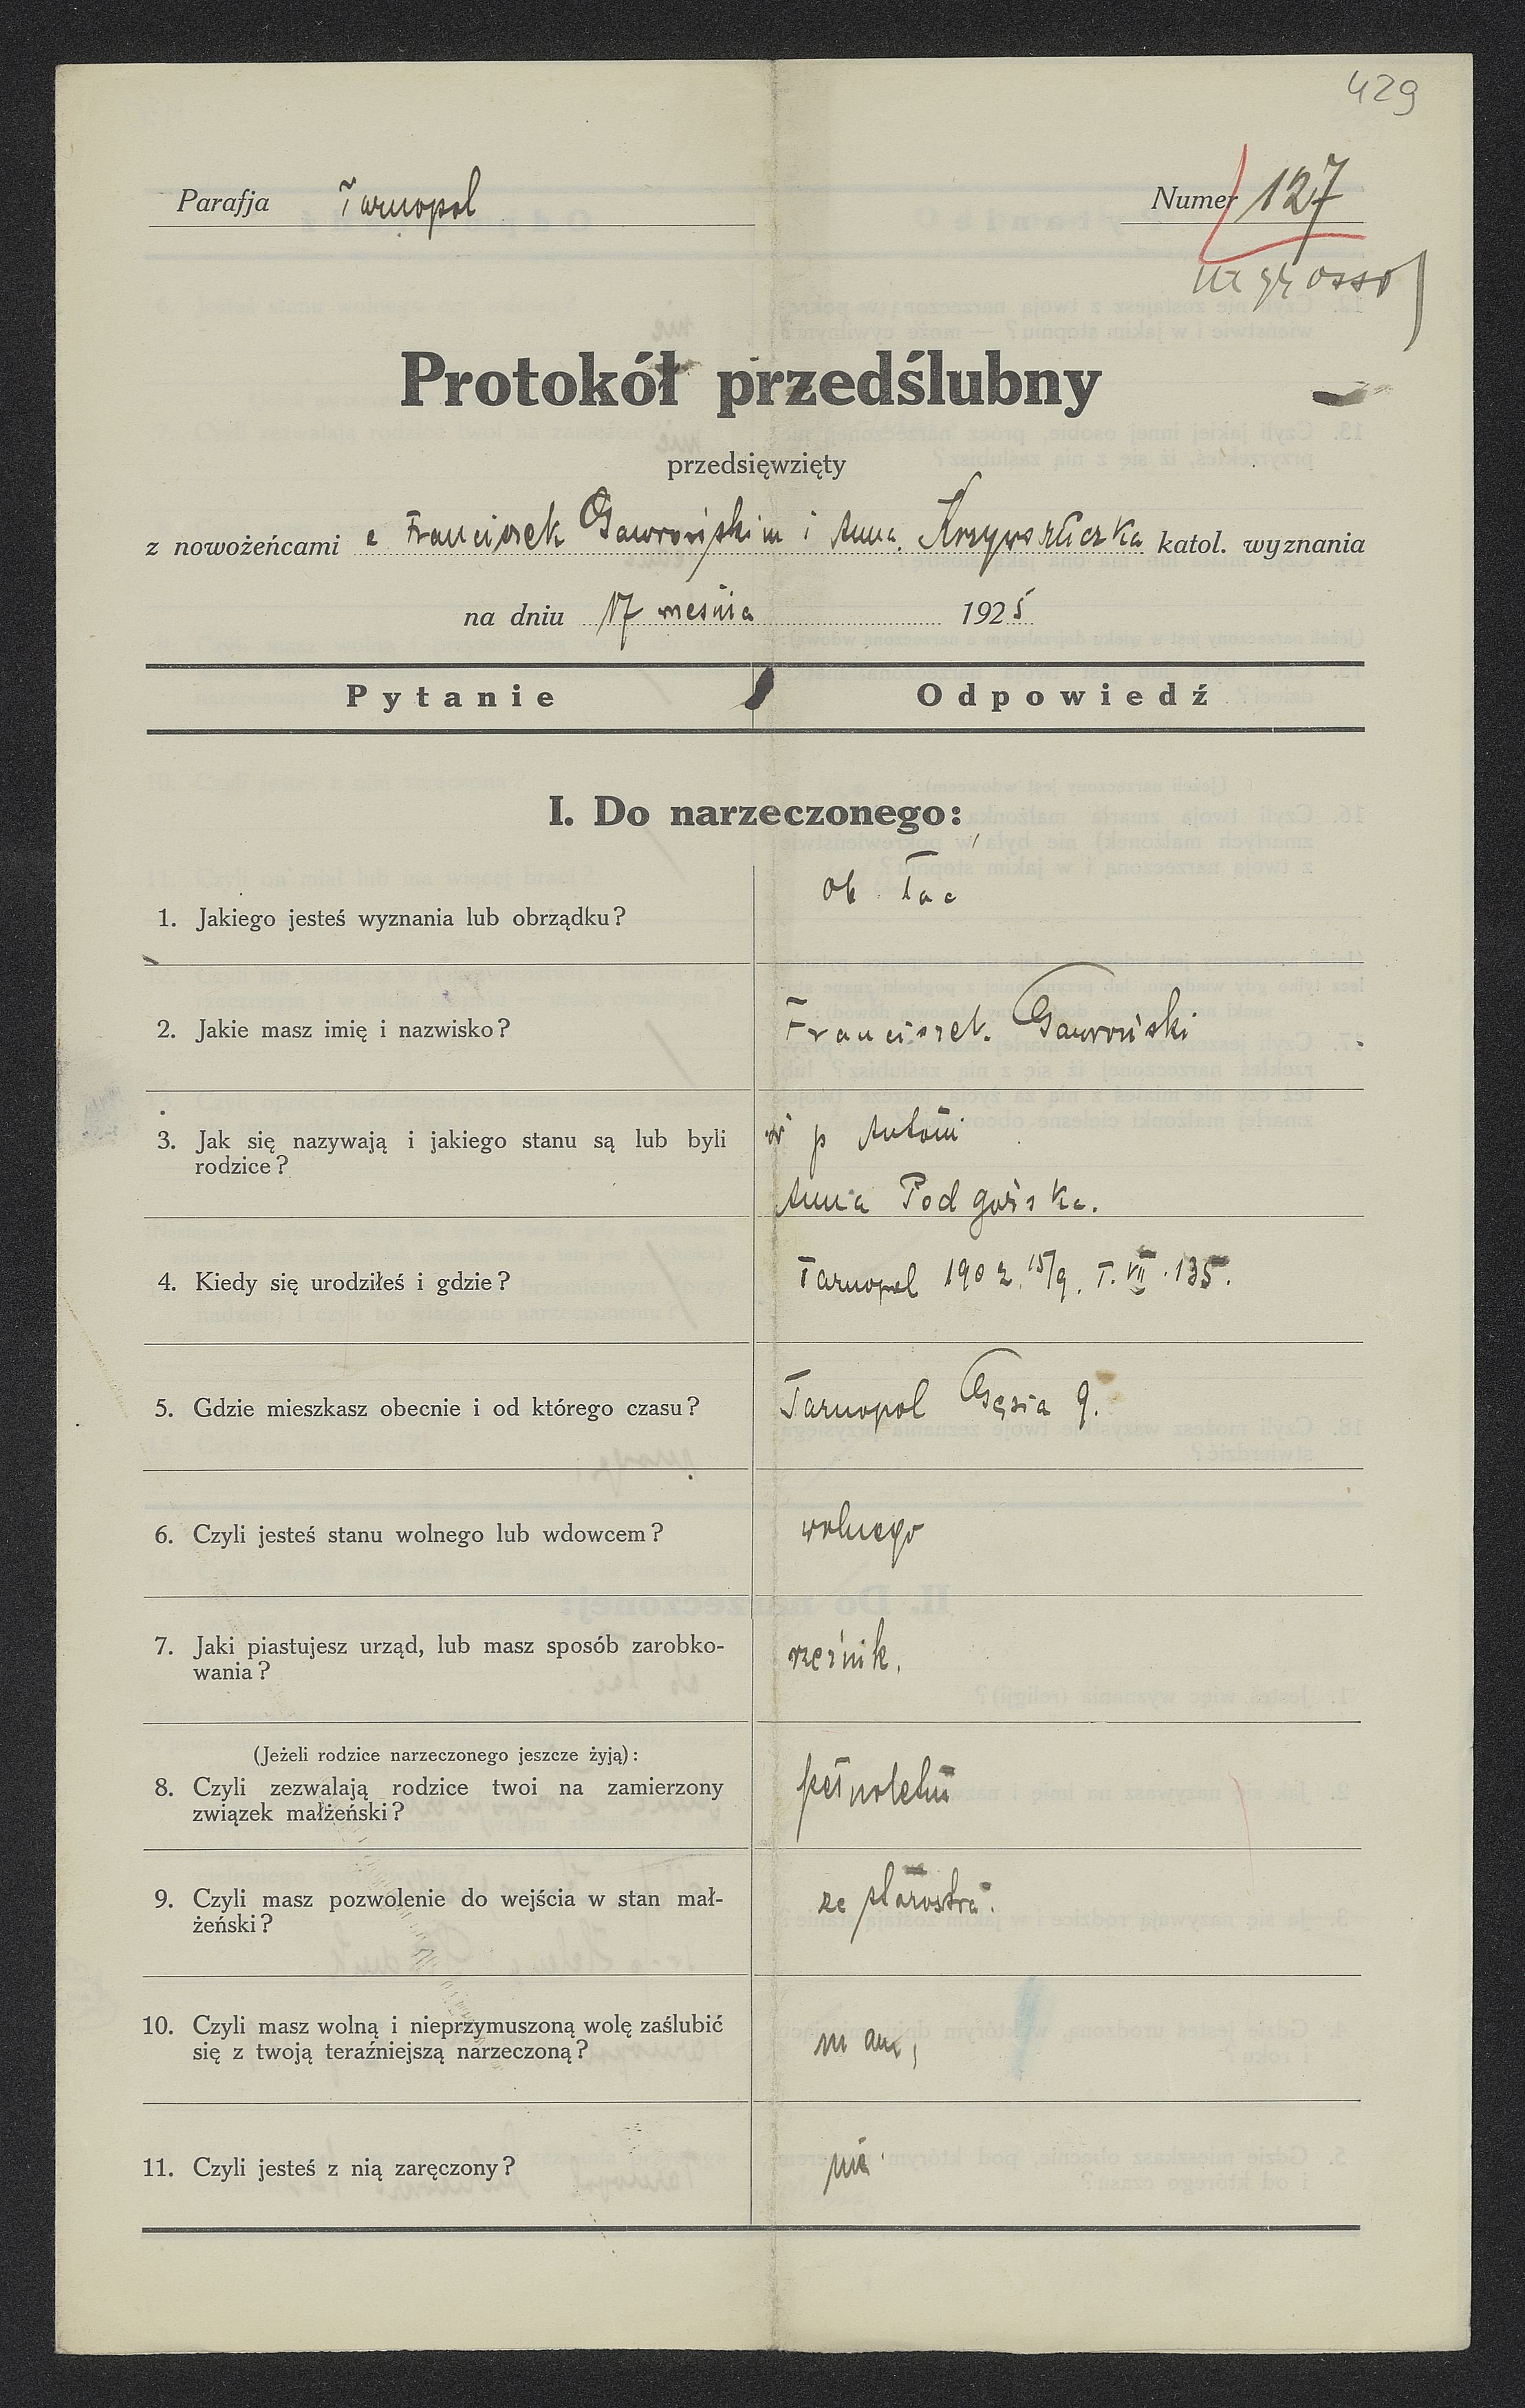 429
Parafja Tarnopol
Numer 127
in grosso
Protokół przedślubny
przedsięwzięty
z nowożeńcami Franciszek Gawrońskim i Anna katol. wyznania
na dniu 17 1925
Pytanie Odpowiedź
I. Do narzeczonego:
1. Jakiego jesteś wyznania lub obrządku? ob łac
2. Jakie masz imię i nazwisko? Franciszek Gawroński
3. Jak się nazywają i jakiego stanu są lub byli ś p Antoni
rodzice?
Anna Podgórska.
4. Kiedy się urodziłeś i gdzie? Tarnopol 1902 15/9. T. VII. 135.
5. Gdzie mieszkasz obecnie i od którego czasu? Tarnopol Gęsia 9.
6. Czyli jesteś stanu wolnego lub wdowcem? wolnego
7. Jaki piastujesz urząd, lub masz sposób zarobko- rzeźnik.
wania?
(Jeżeli rodzice narzeczonego jeszcze żyją):
8. Czyli zezwalają rodzice twoi na zamierzony pełnoletni
związek małżeński?
9. Czyli masz pozwolenie do wejścia w stan mał- ze starostwa.
żeński?
10. Czyli masz wolną i nieprzymuszoną wolę zaślubić mam,
się z twoją teraźniejszą narzeczoną?
11. Czyli jesteś z nią zaręczony? nie